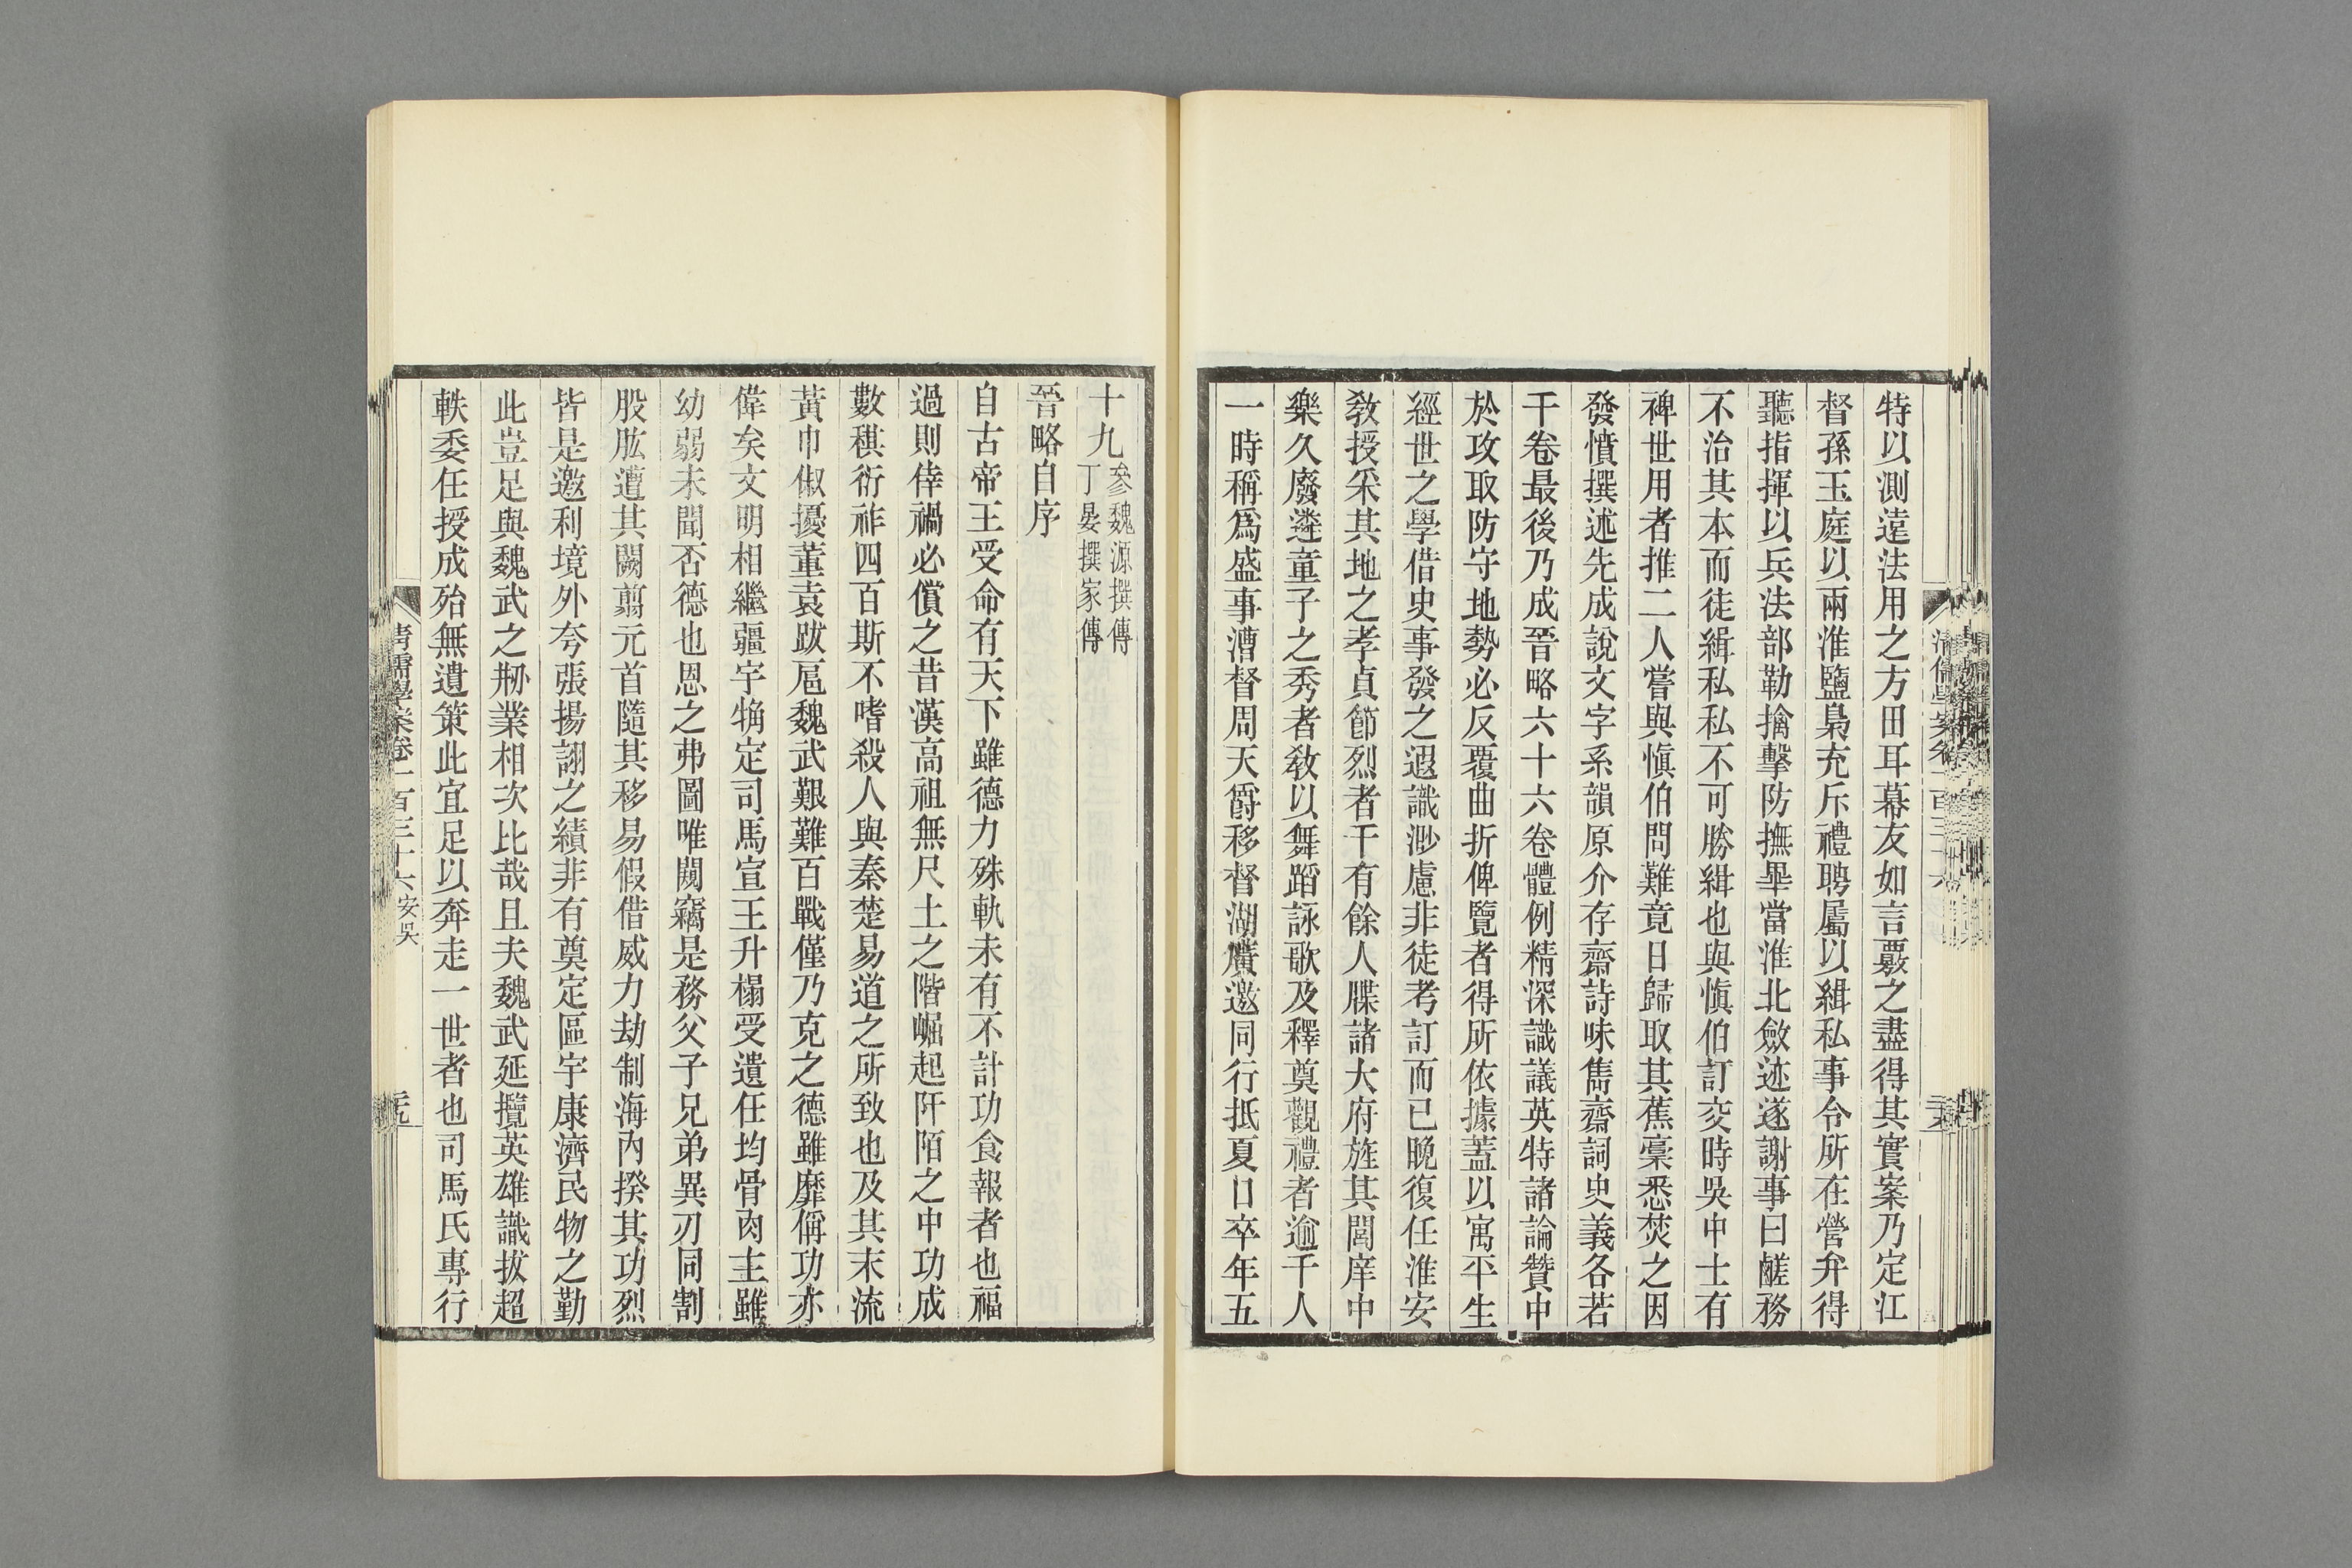 特以測遠法用之方田耳幕友如言覈之盡得其實案乃定江
督孫玉庭以兩淮鹽梟充斥禮聘屬以緝私事令所在營弁得
聽指揮以兵法部勒擒擊防撫畢當淮北斂迹遂謝事曰鹺務
不治其本而徒緝私私不可勝緝也與愼伯訂交時吳中士有
裨世用者推二人嘗與愼伯問難竟日歸取其蕉稾悉焚之因
發憤撰述先成說文字系韻原介存齋詩味雋齋詞史義各若
干卷最後乃成晉略六十六卷體例精深識議英特諸論贊中
於攻取防守地勢必反覆曲折俾覽者得所依據蓋以寓平生
經世之學借史事發之遐識渺慮非徒考訂而已晚復任淮安
敎授采其地之孝貞節烈者千有餘人牒諸大府旌其閭庠中
樂久廢遴童子之秀者敎以舞蹈詠歌及釋奠觀禮者逾千人
一時稱爲盛事漕督周天爵移督湖廣邀同行抵夏口卒年五
清儒學案卷一百三十六
十九參魏源撰傳
丁晏撰家傳
晉略自序
自古帝王受命有天下雖德力殊軌未有不計功食報者也福
過則倖禍必償之昔漢高祖無尺土之階崛起阡陌之中功成
數稘衍祚四百斯不嗜殺人與秦楚易道之所致也及其末流
黃巾俶擾董袁跋扈魏武艱難百戰僅乃克之德雖靡偁功亦
偉矣文明相繼疆宇觕定司馬宣王升榻受遺任均骨肉主雖
幼弱未聞否德也恩之弗圖唯闚竊是務父子兄弟異刃同剚
股肱遭其闕翦元首隨其移易假借威力劫制海內揆其功烈
皆是邀利境外夸張揚詡之績非有奠定區宇康濟民物之勤
此豈足與魏武之剏業相次比哉且夫魏武延攬英雄識拔超
軼委任授成殆無遺策此宜足以奔走一世者也司馬氏專行
清儒學案卷一百三十六 安吳